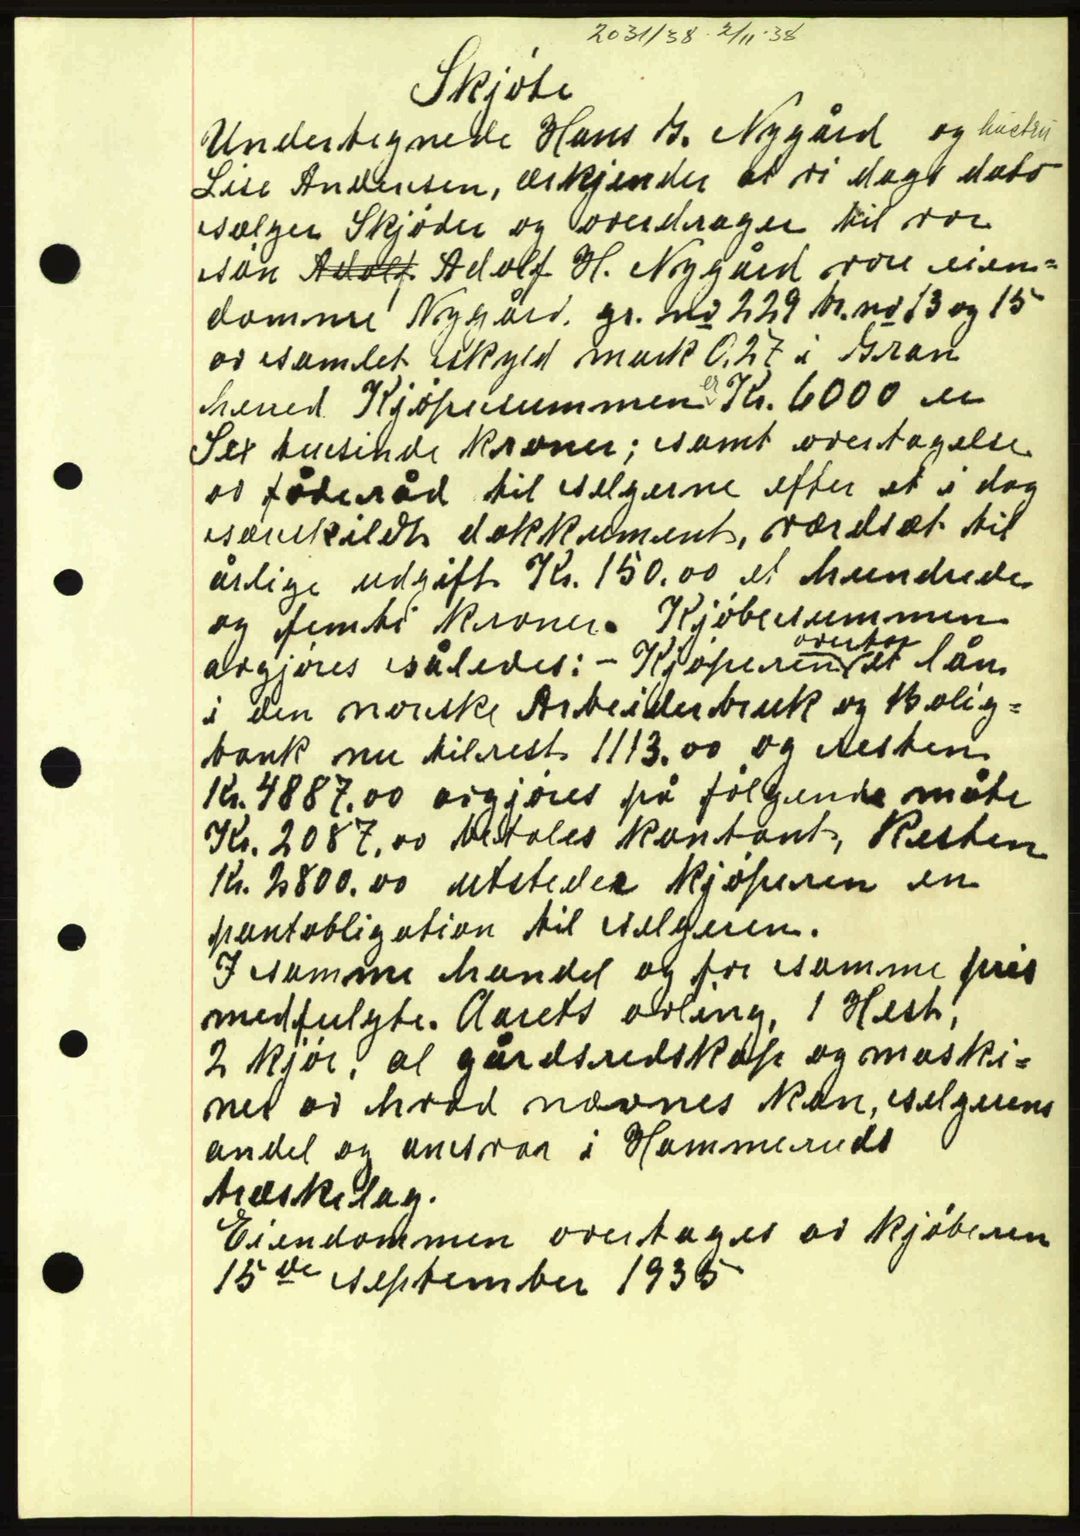 2031/38. 2/11-38
Skjøte
Undertegnede Hans G. Nygård og hustru
Lise Andersen, ærkjender at vi dags dato
sælger Skjøder og overdrager til vor
søn Adolf Adolf H. Nygård vore eien=
domme Nygård. gr. no 229 br. no 13 og 15
av samlet skyld mark 0,27 i Gran
herred Kjøpesummen er Kr. 6000 er
Sex tusinde kroner; samt overtagelse
av føderåd til selgerne efter et i dag
særskildt dokkument, værdsæt til
årlige udgift Kr. 150.00 et hundrede
og femti kroner. Kjøbesummen
avgjøres således: - Kjøperen overtar et lån
i den norske Arbeiderbruk og Bolig=
bank nu tilrest 1113.00 og resten
Kr. 4887.00 avgjøres på følgende måte
Kr. 2087.00 betales kontant, Resten
Kr. 2800.00 utsteder kjøperen en
pantobligation til selgeren.
I samme handel og for samme pris
medfulgte. Aarets avling, 1 Hest,
2 kjør, al gårdsredskap og maski=
ner av hvad nævnes kan, selgerens
andel og ansvar i Hammeruds
træskelag.
Eiendommen overtages av kjøberen
15de september 1935